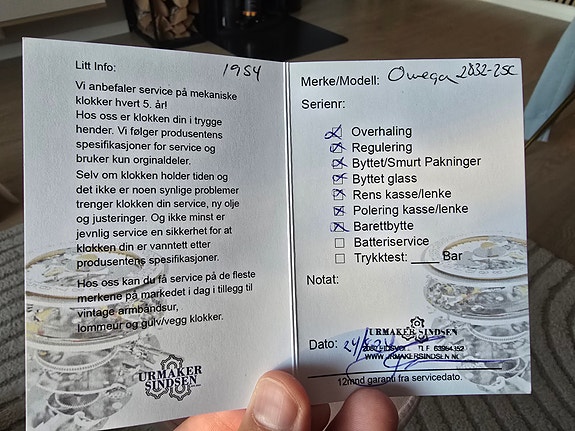 Litt Info:
1954
Vi anbefaler service på mekaniske
klokker hvert 5. år!
Hos oss er klokken din i trygge
hender. Vi følger produsentens
spesifikasjoner for service og
bruker kun orginaldeler.
Selv om klokken holder tiden og
det ikke er noen synlige problemer
trenger klokken din service, ny olje
og justeringer. Og ikke minst er
jevnlig service en sikkerhet for at
klokken din er vanntett etter
produsentens spesifikasjoner.
Hos oss kan du få service på de fleste
merkene på markedet i dag i tillegg til
vintage armbåndsur,
lommeur og gulv/vegg klokker.
URMAKER
SINDSEN
Merke/Modell: Omega 2832-2SC
Serienr:
Overhaling
Regulering
Byttet/Smurt Pakninger
Byttet glass
Rens kasse/lenke
Polering kasse/lenke
Barettbytte
Batteriservice
Trykktest: ____ Bar
Notat:
URMAKER SINDSEN
Dato:
TLF
WWW.URMAKERSINDSEN.NO
12mnd garanti fra servicedato.